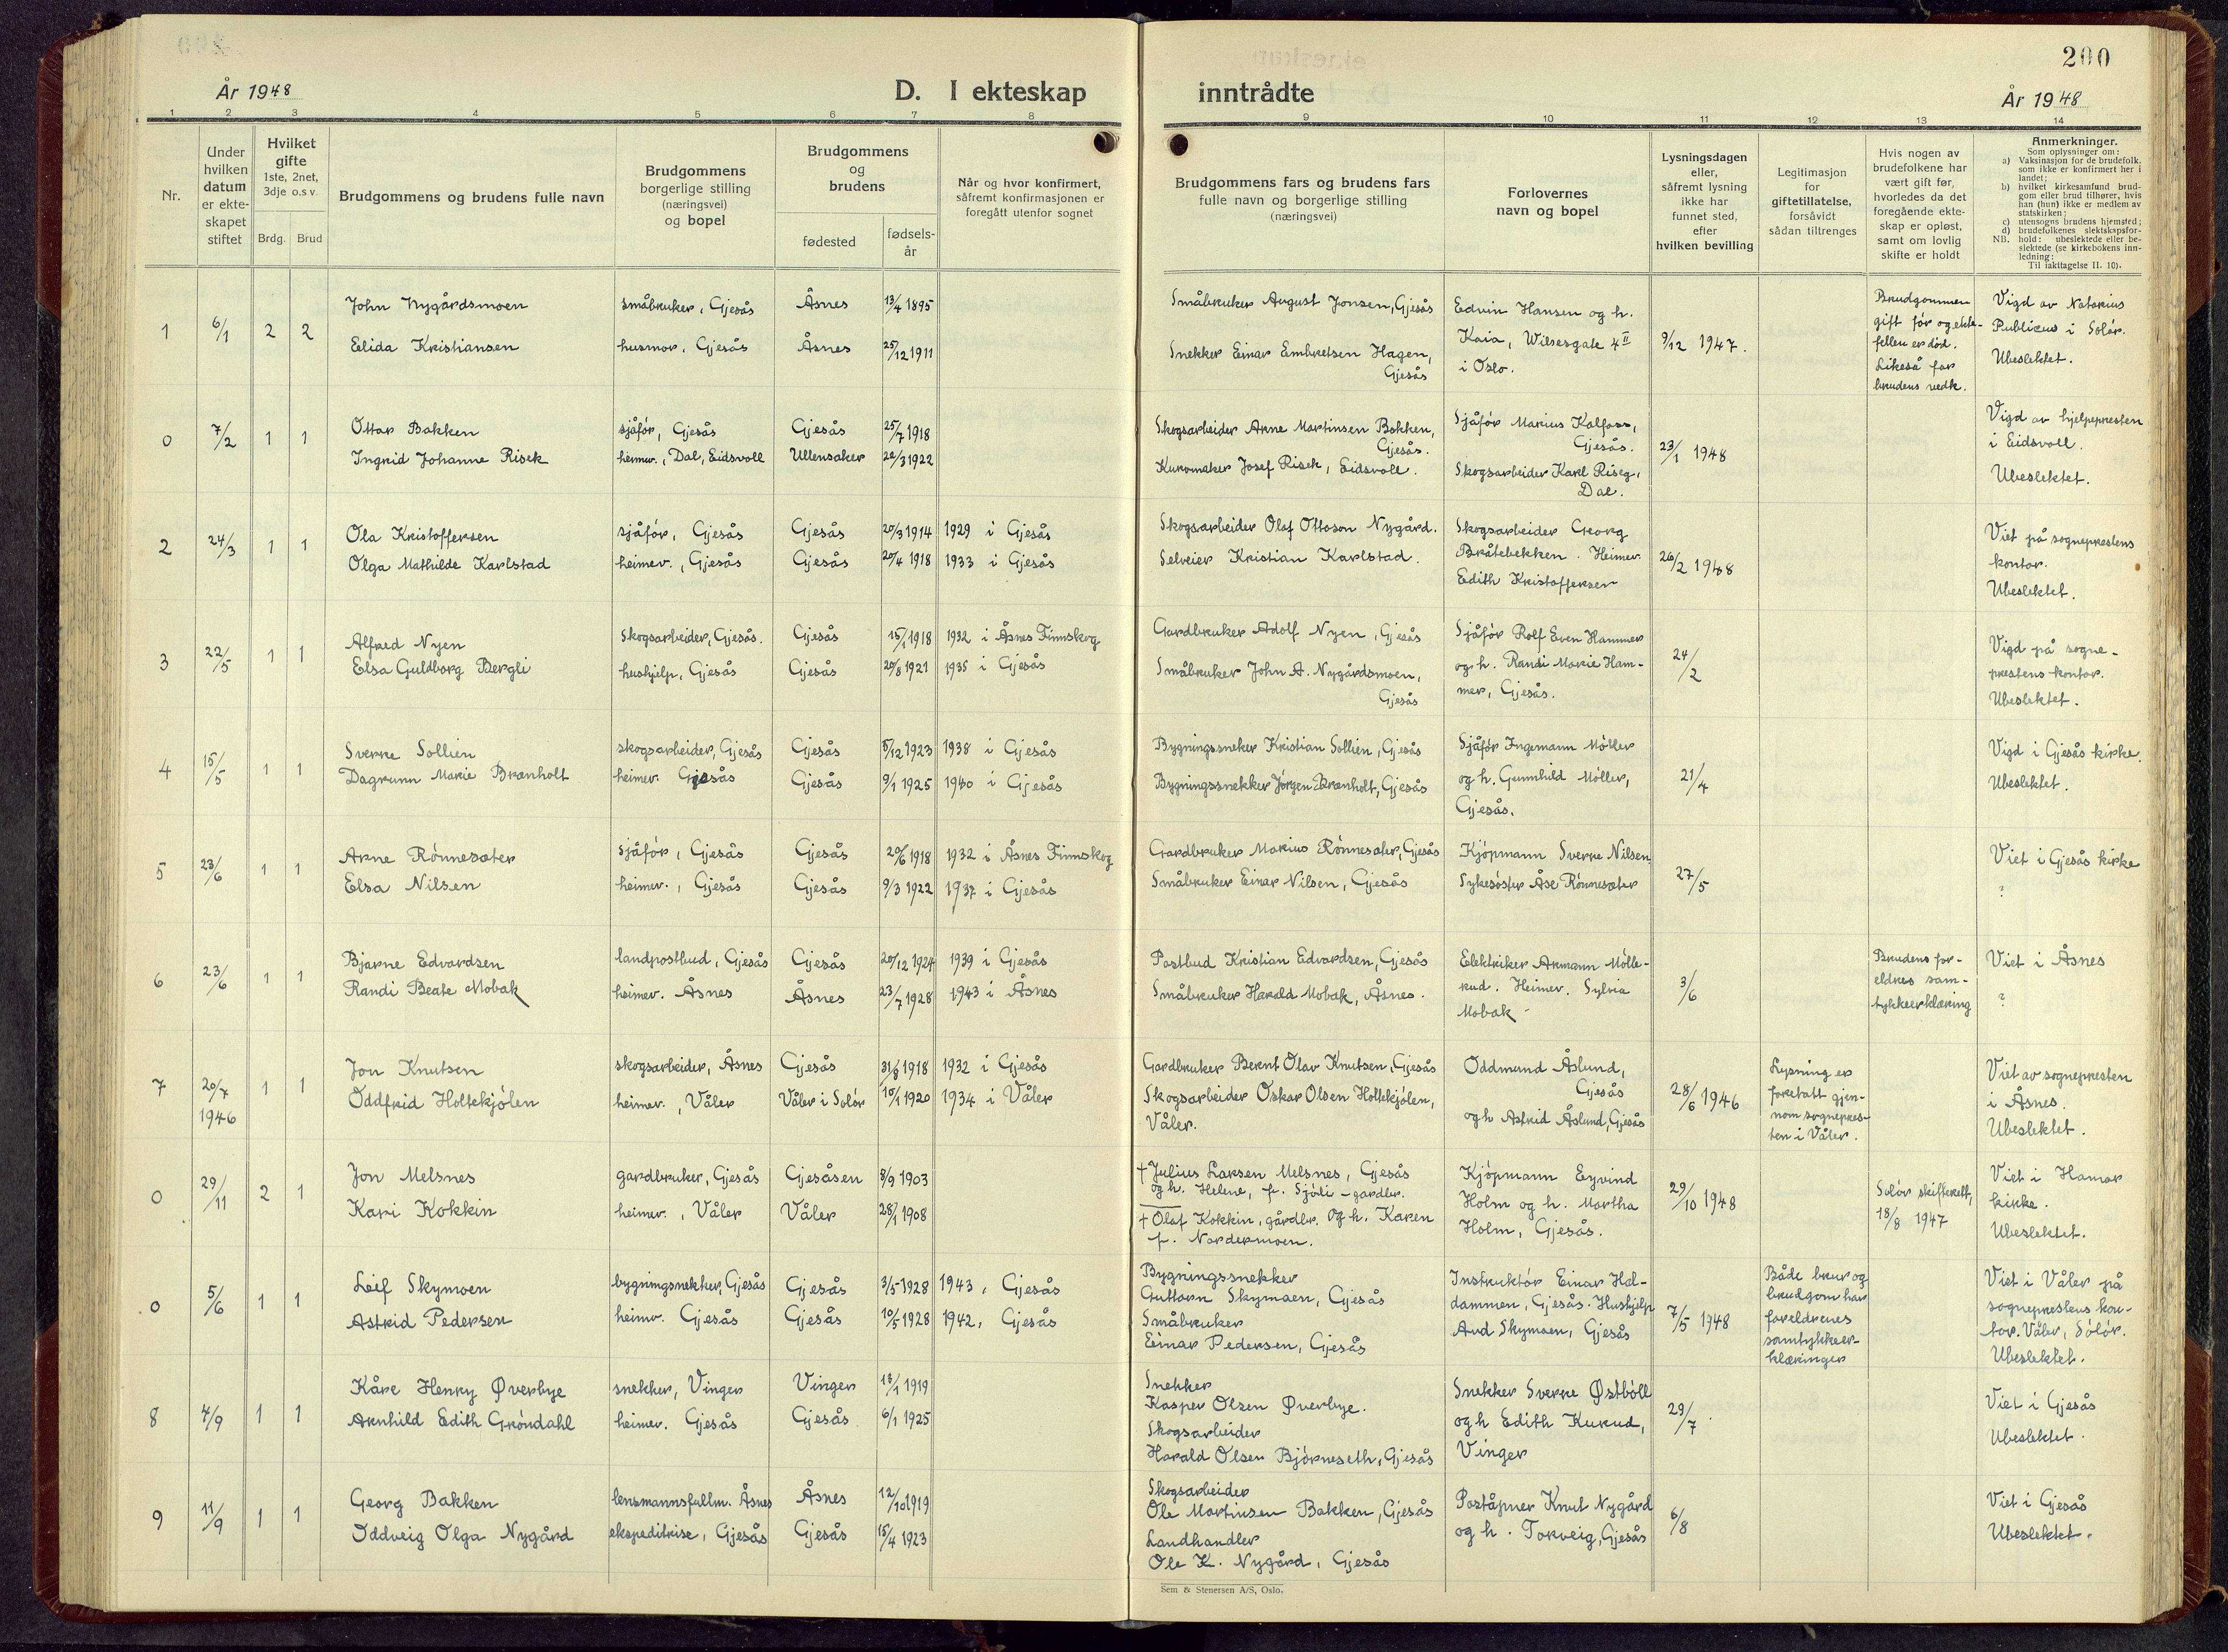 200
År 1948
D. I ekteskap inntrådte
År 1948
1 2 3 4 5 6 7 8 9 10 11 12 13 14
Nr.
Under hvilken datum er ekteskapet stiftet
Hvilket gifte 1ste, 2net, 3dje o.s.v.
Brdg. Brud
Brudgommens og brudens fulle navn
Brudgommens borgerlige stilling (næringsvei) og bopel
Brudgommens og brudens
fødested
fødselsår
Når og hvor konfirmert, såfremt konfirmasjonen er foregått utenfor sognet
Brudgommens fars og brudens fars fulle navn og borgerlige stilling (næringsvei)
Forlovernes navn og bopel
Lysningsdagen eller, såfremt lysning ikke har funnet sted, efter hvilken bevilling
Legitimasjon for giftetillatelse, forsåvidt sådan tiltrenges
Hvis nogen av brudefolkene har vært gift før, hvorledes da det foregående ekteskap er opløst, samt om lovlig skifte er holdt
Anmerkninger.
Som oplysninger om:
a) Vaksinasjon for de brudefolk. som ikke er konfirmert her i landet;
b) hvilket kirkesamfund brudgom eller brud tilhører, hvis han (hun) ikke er medlem av statskirken;
c) utensogns brudens hjemsted;
d) brudefolkenes slektskapsforhold: ubeslektede eller beslektede (se kirkebokens innledning:
NB. Til iakttagelse II. 10).
1 6/1 2 2
John Nygårdsmoen småbruker, Gjesås Åsnes 13/4 1895
Elida Kristiansen husmor, Gjesås Åsnes 25/12 1911
Småbruker August Jonsen, Gjesås
Snekker Einar Embretsen Hagen, Gjesås
Edvin Hansen og h.
Kaia, Wilsesgate 4 II
i Oslo.
9/12 1947.
Brudgommen
gift før og ekte-
fellen er død.
Likeså for
brudens vedk.
Vigd av Notarius
Publicus i Solør.
Ubeslektet.
0 7/2 1 1
Ottar Bakken sjåfør, Gjesås Gjesås 25/7 1918
Ingrid Johanne Risek heimev., Dal, Eidsvoll Ullensaker 22/3 1922
Skogsarbeider Arne Martinsen Bakken,
Gjesås.
Kurvmaker Josef Risek, Eidsvoll.
Sjåfør Marius Kalfoss,
Gjesås.
Skogsarbeider Karl Riseg,
Dal.
23/1 1948
Vigd av hjelpepresten
i Eidsvoll.
Ubeslektet.
2 24/3 1 1
Ola Kristoffersen sjåfør, Gjesås Gjesås 20/3 1914 1929 i Gjesås
Olga Mathilde Karlstad heimev., Gjesås Gjesås 20/4 1918 1933 i Gjesås
Skogsarbeider Olaf Ottoson Nygård.
Selveier Kristian Karlstad.
Skogsarbeider Georg
Bråtebekken. Heimev.
Edith Kristoffersen
26/2 1948
Viet på sogneprestens
kontor.
Ubeslektet.
3 22/5 1 1
Alfred Nyen Skogsarbeider, Gjesås. Gjesås 15/1 1918 1932 i Åsnes Finnskog
Elsa Guldborg Bergli hushjelp, Gjesås Gjesås 20/8 1921 1935 i Gjesås
Gardbruker Adolf Nyen, Gjesås
Småbruker John A. Nygårdsmoen,
Gjesås
Sjåfør Rolf Even Hammer
og h. Randi Marie Ham-
mer, Gjesås.
24/2
Vigd på sogne-
prestens kontor.
Ubeslektet.
4 15/5 1 1
Sverre Sollien skogsarbeider, Gjesås Gjesås 5/12 1923 1938 i Gjesås
Dagrunn Marie Brænholt heimev. Gjesås Gjesås 9/1 1925 1940 i Gjesås
Bygningssneker Kristian Sollien, Gjesås
Bygningssnekker Jørgen Brænholt, Gjesås
Sjåfør Ingemann Møller
og h. Gunnhild Møller,
Gjesås.
21/4
Vigd i Gjesås kirke.
Ubeslektet.
5 23/6 1 1
Arne Rønnesæter sjåfør, Gjesås Gjesås 20/6 1918 1932 i Åsnes Finnskog
Elsa Nilsen heimev., Gjesås Gjesås 9/3 1922 1937 i Gjesås
Gardbruker Marius Rønnesæter, Gjesås
Småbruker Einar Nilsen, Gjesås
Kjøpmann Sverre Nilsen
Sykesøster Åse Rønnesæter
27/5
Viet i Gjesås kirke
?
6 23/6 1 1
Bjarne Edvardsen landpostbud, Gjesås Gjesås 20/12 1924 1939 i Gjesås
Randi Beate Mobak heimev. Åsnes Åsnes 23/7 1928 1943 i Åsnes
Postbud Kristian Edvardsen, Gjesås
Småbruker Harald Mobak, Åsnes.
Elektriker Armann Mølle-
rud. Heimev. Sylvia
Mobak
3/6
Brudens for-
eldres sam-
tykkeerklæring
Viet i Åsnes
?
7 20/7 1946 1 1
Jon Knutsen skogsarbeider, Åsnes Gjesås 31/8 1918 1932 i Gjesås
Oddfrid Holtekjølen heimev., Våler Våler i Solør 10/1 1920 1934 i Våler
Gardbruker Bernt Olav Knutsen, Gjesås
Skogsarbeider Oskar Olsen Holtekjølen,
Våler.
Oddmund Åslund,
Gjesås
og h Astrid Åslund, Gjesås
28/6 1946
Lysning er
foretatt gjen-
nom sognepres-
ten i Våler.
Viet av sognepresten
i Åsnes.
Ubeslektet.
0 29/11 2 1
Jon Melsnes gardbruker, Gjesås Gjesåsen 8/9 1903
Kari Kokkin heimev., Våler Våler 28/1 1908
† Julius Larsen Melsnes, Gjesås
og h. Helene, f. Sjøli – gardbr.
† Olaf Kokkin, gårdbr. og h. Karen
f. Nordermoen.
Kjøpmann Eyvind
Holm og h. Martha
Holm, Gjesås.
29/10 1948
Solør skifterett,
18/8 1947
Viet i Hamar
kirke.
Ubeslektet.
0 5/6 1 1
Leif Skymoen bygningsnekker, Gjesås Gjesås 3/5 1928 1943, Gjesås
Astrid Pedersen heimv. Gjesås Gjesås 10/5 1928 1942, Gjesås
Bygningssnekker
Guttorn Skymoen, Gjesås
Småbruker
Einar Pedersen, Gjesås
Instruktør Einar Hal-
dammen, Gjesås. Hushjelp
Aud Skymoen, Gjesås
7/5 1948
Både brur og
brudgom har
foreldrenes
samtykkeer-
klæringer
Viet i Våler på
sogneprestens kon-
tor. Våler, Solør.
Ubeslektet.
8 4/9 1 1
Kåre Henry Øverbye snekker, Vinger Vinger 18/1 1919
Arnhild Edith Grøndahl heimev. Gjesås Gjesås 6/1 1925
Snekker
Kasper Olsen Øverbye.
Skogsarbeider
Harald Olsen Bjørneseth, Gjesås
Snekker Sverre Østbøll
og h Edith Kurud,
Vinger
29/7.
Viet i Gjesås
Ubeslektet.
9 11/9 1 1
Georg Bakken lensmannsfullm. Åsnes Åsnes 12/10 1919
Oddveig Olga Nygård ekspeditrise, Gjesås Gjesås 15/4 1923
Skogsarbeider
Ole Martinsen Bakken, Gjesås
Landhandler
Ole K. Nygård, Gjesås
Poståpner Knut Nygård
og h. Torveig, Gjesås
6/8
Viet i Gjesås
Ubeslektet.
Sem & Stenersen A/S, Oslo.